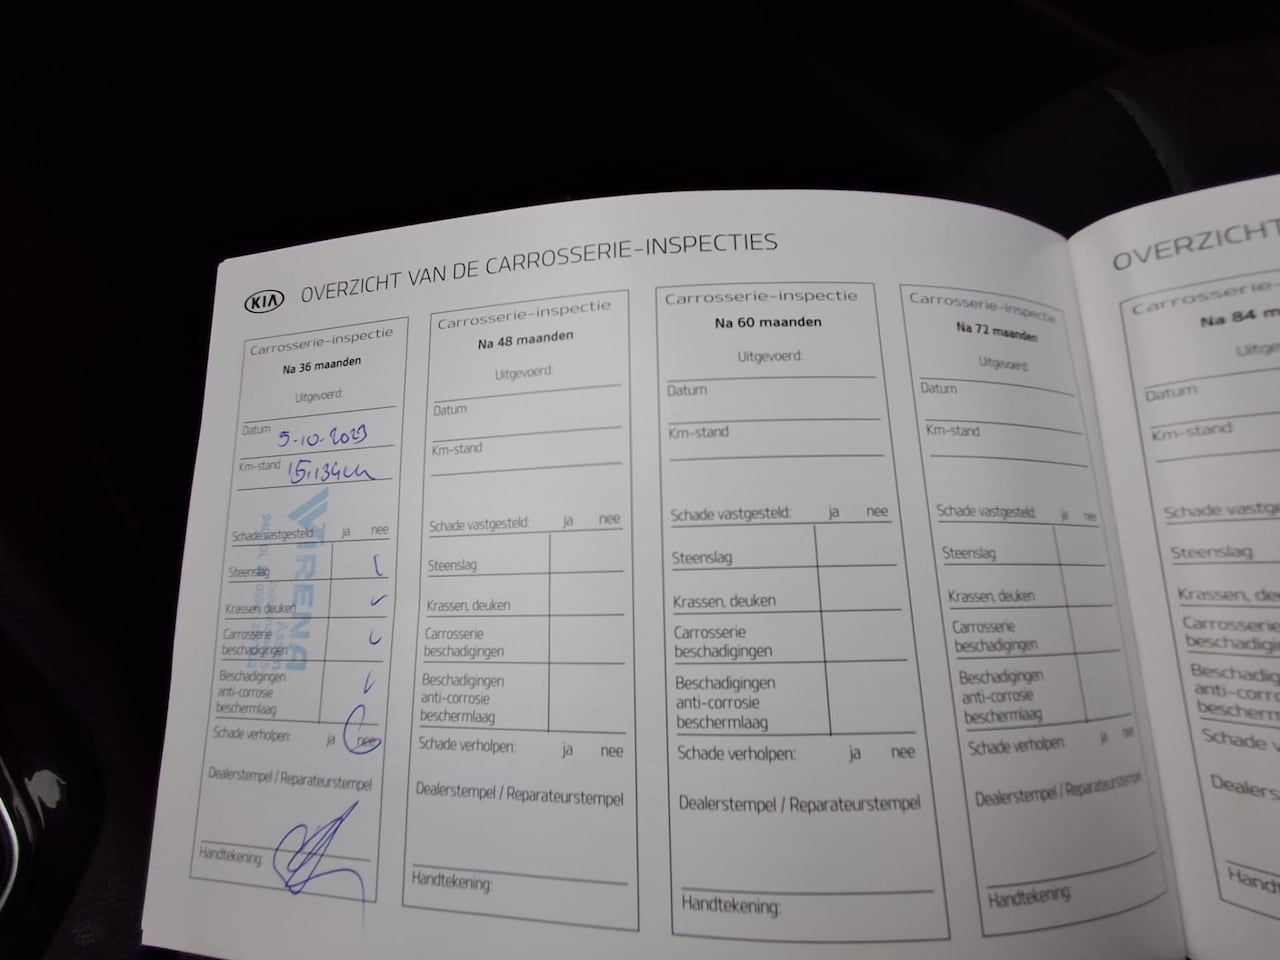 KIA OVERZICHT VAN DE CARROSSERIE-INSPECTIES
Carrosserie-inspectie
Na 36 maanden
Uitgevoerd:
Datum 5-10-2023
Km-stand 15.134
Schade vastgesteld: ja nee
Steenslag
Krassen, deuken
Carrosserie
beschadigingen
Beschadigingen
anti-corrosie
beschermlaag
Schade verholpen: ja nee
Dealerstempel / Reparateurstempel
Handtekening:
WIRENA
Carrosserie-inspectie
Na 48 maanden
Uitgevoerd:
Datum
Km-stand
Schade vastgesteld: ja nee
Steenslag
Krassen, deuken
Carrosserie
beschadigingen
Beschadigingen
anti-corrosie
beschermlaag
Schade verholpen: ja nee
Dealerstempel / Reparateurstempel
Handtekening:
Carrosserie-inspectie
Na 60 maanden
Uitgevoerd:
Datum
Km-stand
Schade vastgesteld: ja nee
Steenslag
Krassen, deuken
Carrosserie
beschadigingen
Beschadigingen
anti-corrosie
beschermlaag
Schade verholpen: ja nee
Dealerstempel / Reparateurstempel
Handtekening:
Carrosserie-inspectie
Na 72 maanden
Uitgevoerd:
Datum
Km-stand
Schade vastgesteld: ja nee
Steenslag
Krassen, deuken
Carrosserie
beschadigingen
Beschadigingen
anti-corrosie
beschermlaag
Schade verholpen: ja nee
Dealerstempel / Reparateurstempel
Handtekening:
OVERZICHT
Carrosserie-
Na 84 m
Uitge
Datum
Km-stand
Schade vastg
Steenslag
Krassen, de
Carrosserie
beschadigi
Beschadig
anti-corr
bescherm
Schade v
Dealers
Handt